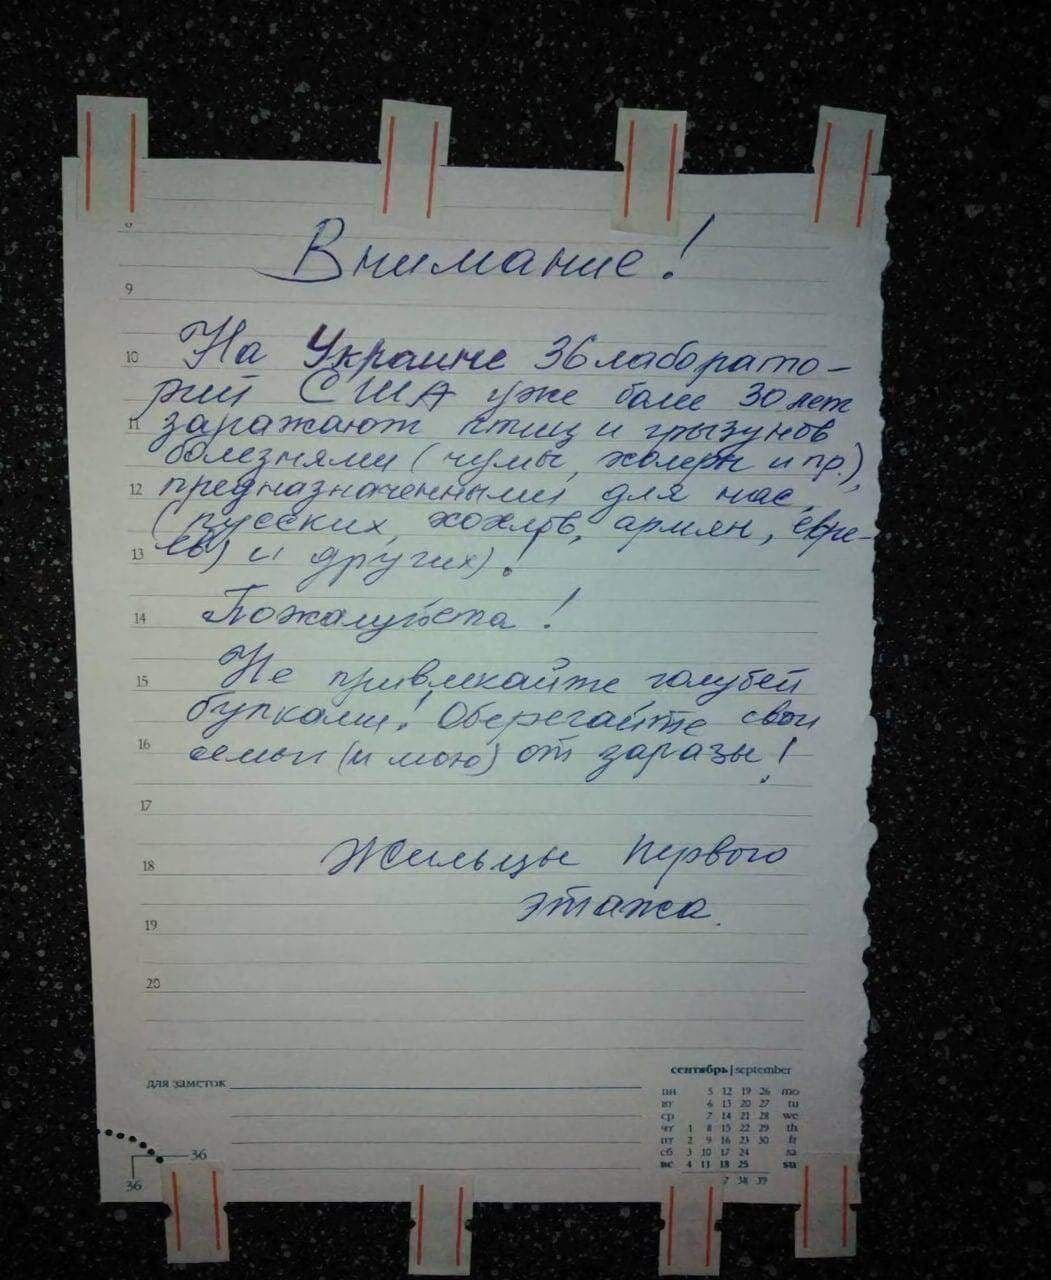 Внимание!
8
9
На Украине 36 лаборато-
10
рий США уже более 30 лет
11
заражают птиц и грызунов
болезнями (чумы, холеры и пр.),
12
предназначенными для нас
(русских, хохлов, армян, евре-
13
ев) и других)!
14
Пожалуйста!
15
Не привлекайте голубей
булками! Оберегайте свои
16
семьи (и мою) от заразы!
17
18
Жильцы первого
этажа.
19
20
для заметок
сентябрь | september
пн 5 12 19 26 mo
вт 6 13 20 27 tu
ср 7 14 21 28 we
чт 1 8 15 22 29 th
пт 2 9 16 23 30 fr
сб 3 10 17 24 sa
вс 4 11 18 25 su
7 38 39
36
36